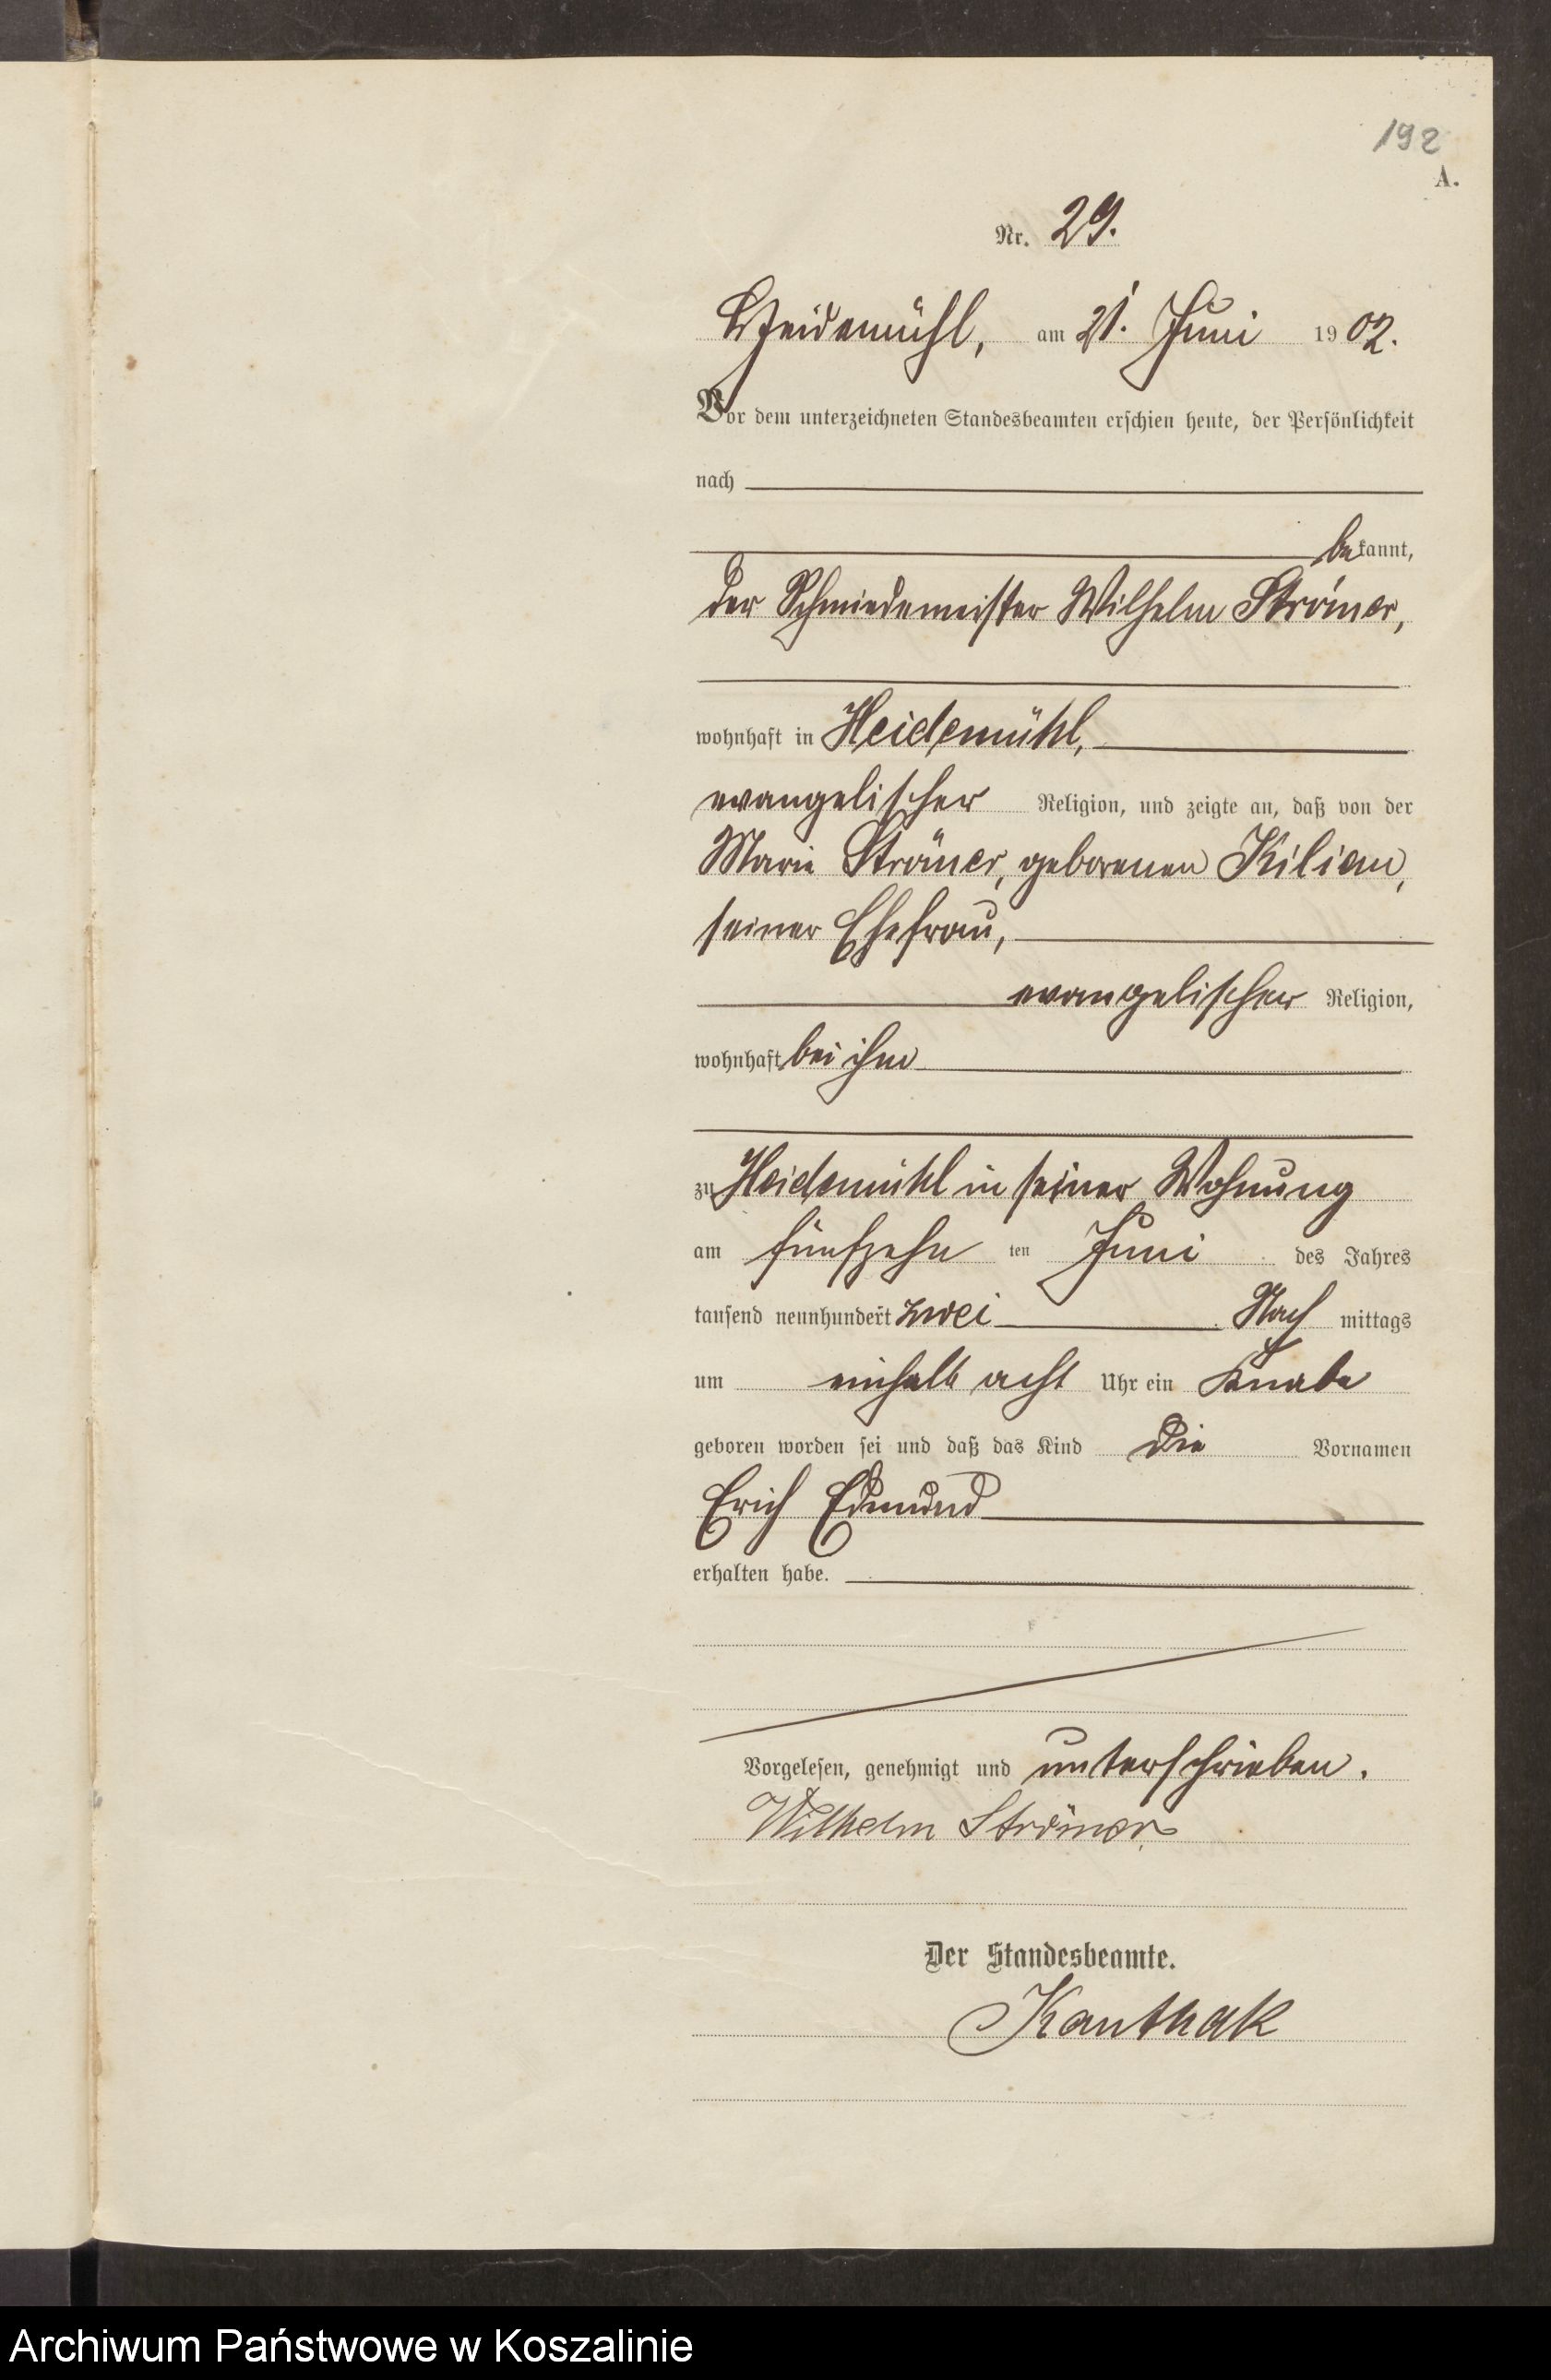 192
A.
Nr. 29.
Heidemühl, am 21. Juni 1902.
Vor dem unterzeichneten Standesbeamten erschien heute, der Persönlichkeit
nach
bekannt,
der Schmiedemeister Wilhelm Strömer,
wohnhaft in Heidemühl,
evangelischer Religion, und zeigte an, daß von der
Marie Strömer, geborenen Kilian,
seiner Ehefrau,
evangelischer Religion,
wohnhaft bei ihm
zu Heidemühl in seiner Wohnung
am fünfzehn ten Juni des Jahres
tausend neunhundert zwei Nach mittags
um einhalb acht Uhr ein Knabe
geboren worden sei und daß das Kind die Vornamen
Erich Edmund
erhalten habe.
Vorgelesen, genehmigt und unterschrieben.
Wilhelm Strömer
Der Standesbeamte.
Kanthak
Archiwum Państwowe w Koszalinie